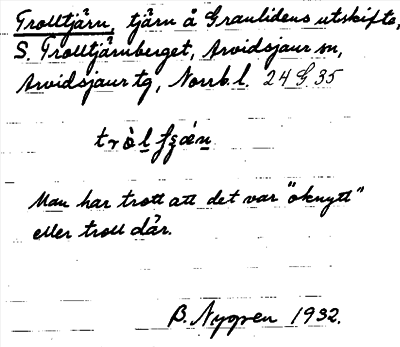 Trolltjärn, tjärn å Granlidens utskifte,
S. Trolltjärnberget, Arvidsjaur sn,
Arvidsjaur tg, Norrb. l. 24 G. 35
Man har trott att det var "oknytt"
eller troll där.
B. Nygren 1932.